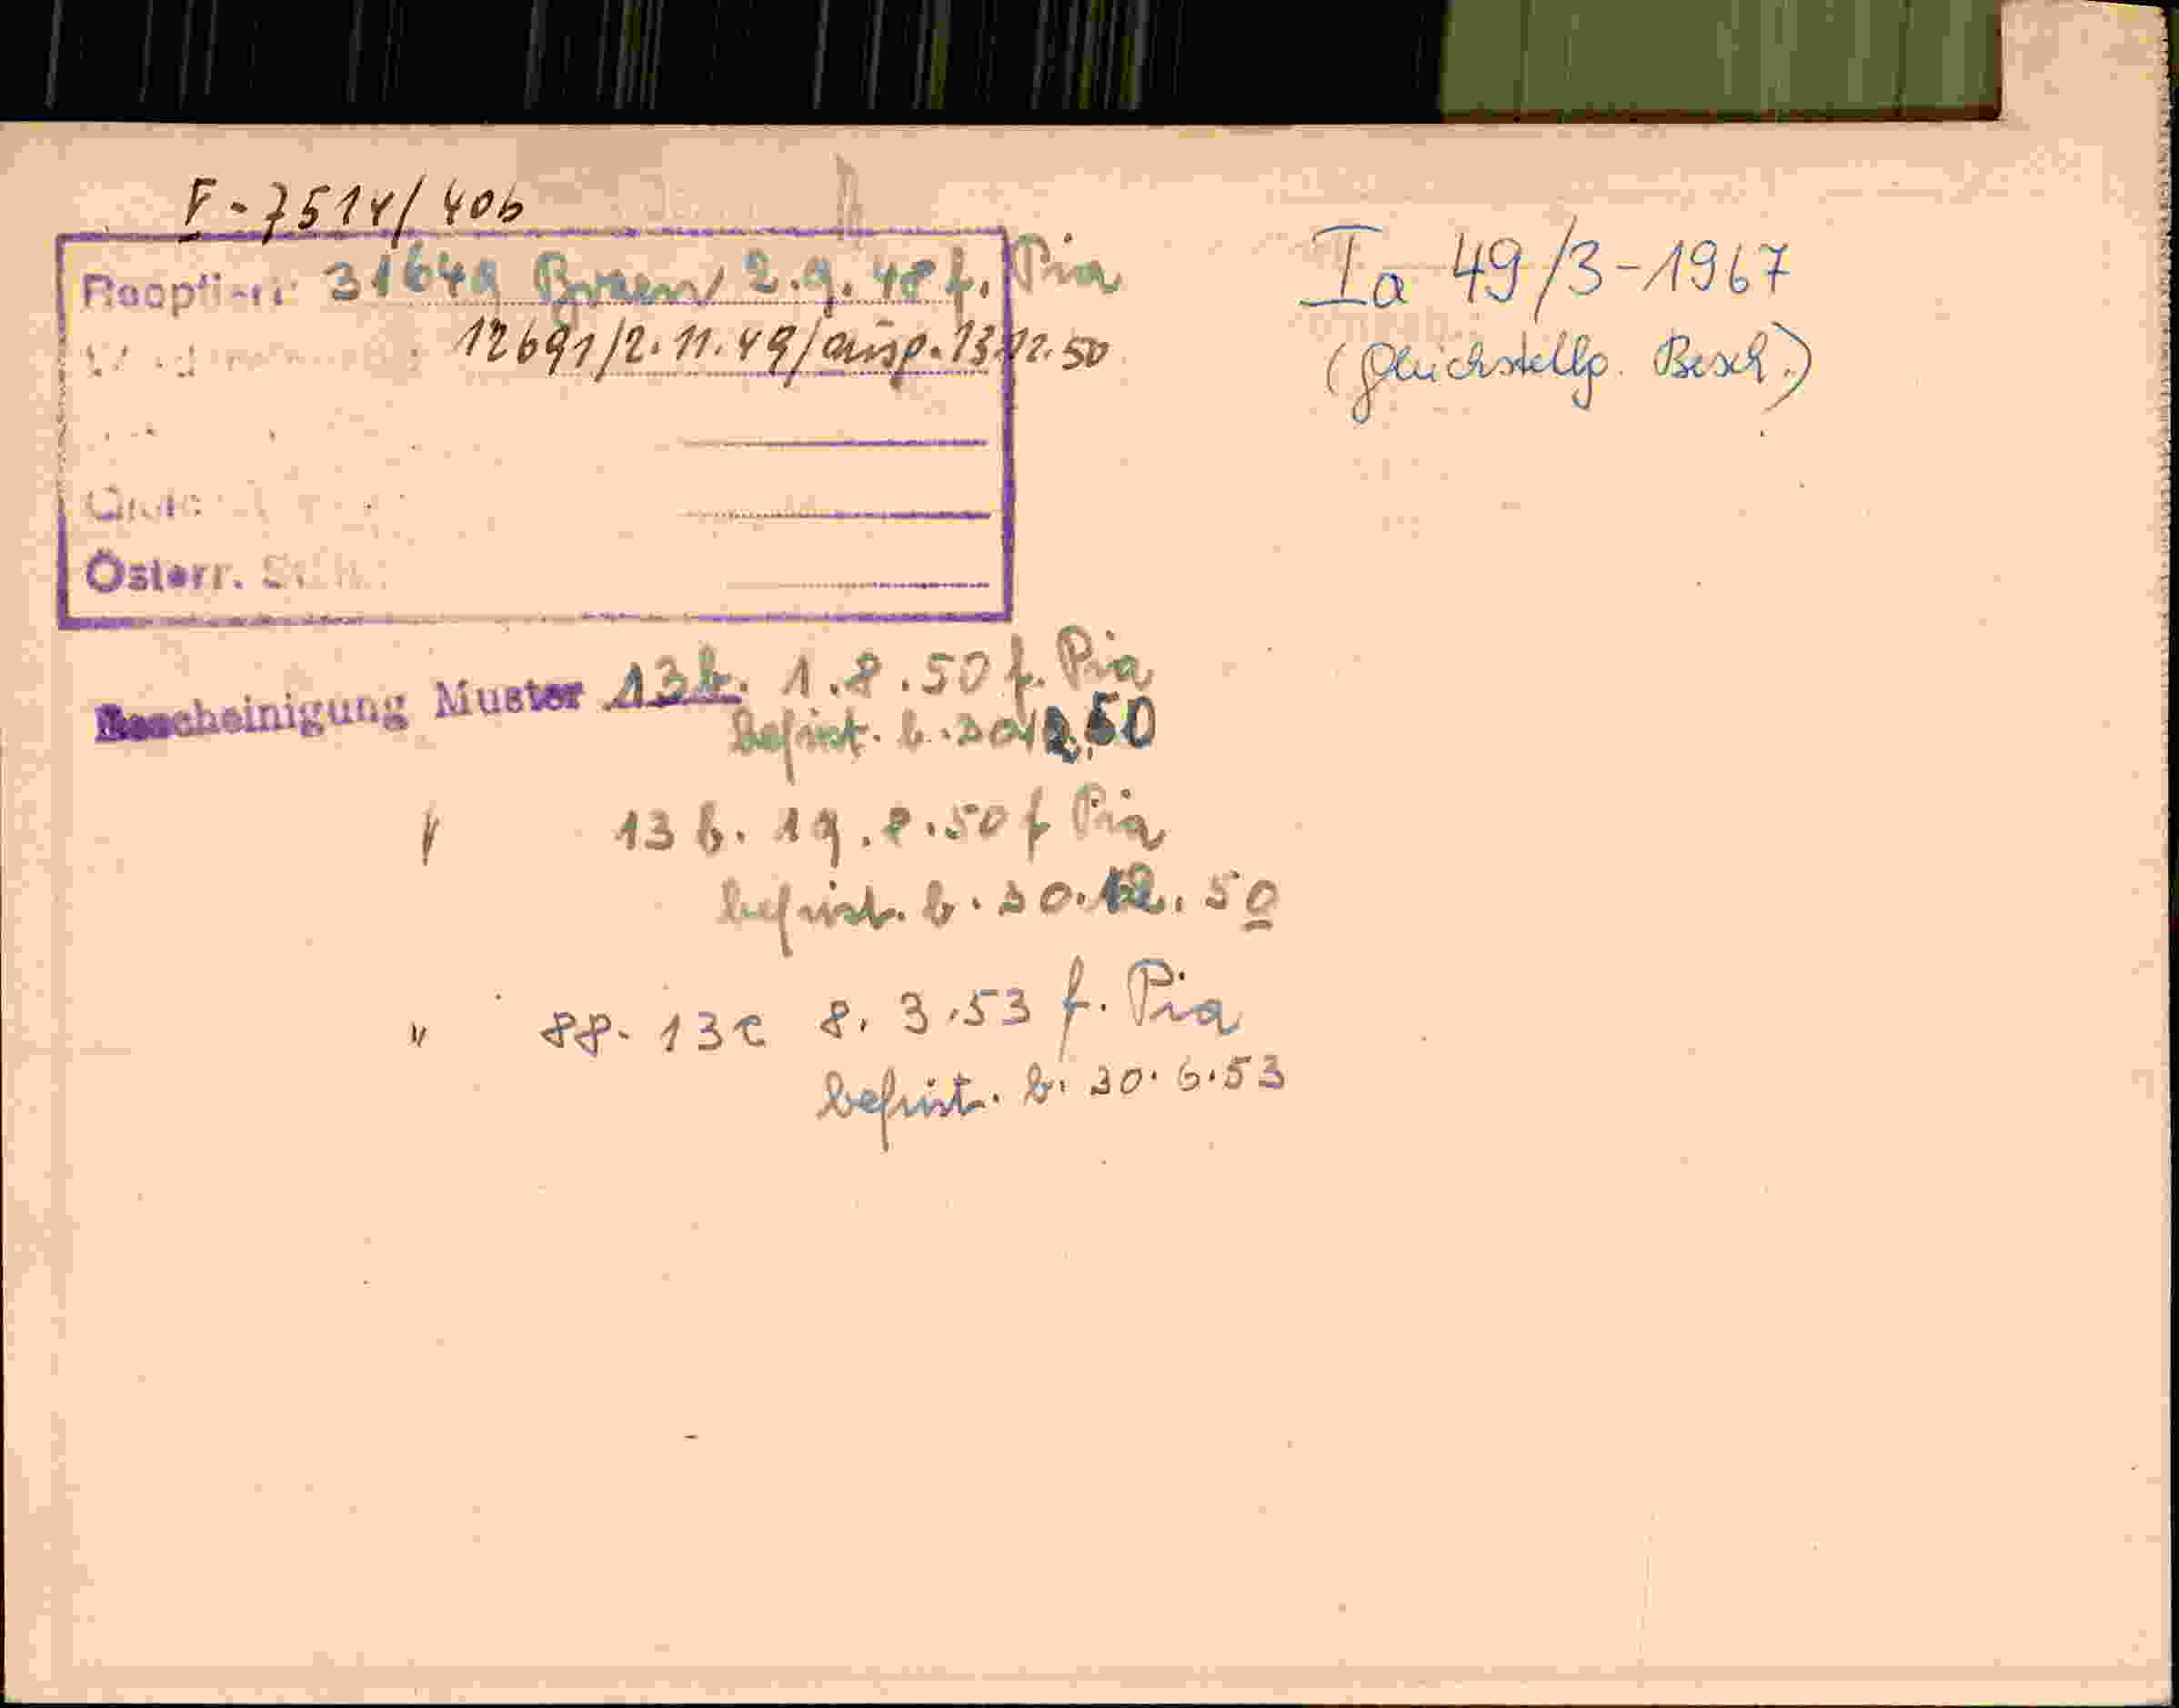 V-7514/40b
Reoptiert: 31649 Bozen 2.9.48 f. Pia
12691/2.11.49/ausg. 13.12.50
Österr.
Bescheinigung Muster 13b. 1.8.50 f. Pia
befrist. b. 30.12.50
" 13 b. 19.8.50 f Pia
befrist. b. 30.12.50
" 88. 13c 8.3.53 f. Pia
befrist. b. 30.6.53
Ia 49/3-1967
(Gleichstellg. Besch.)